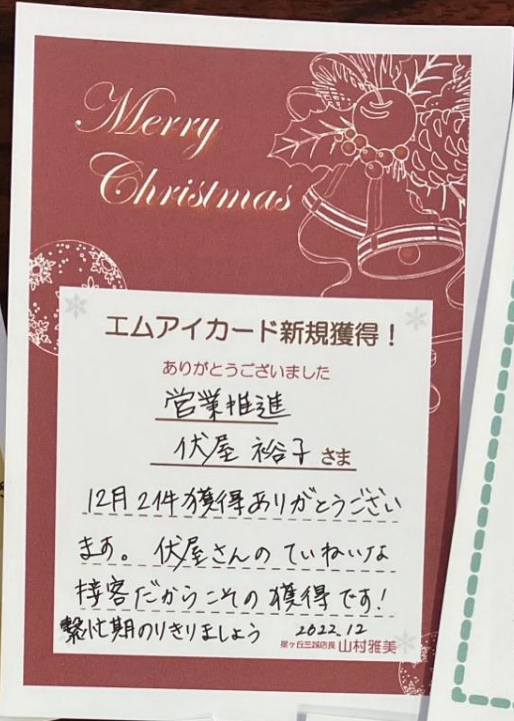 Merry
Christmas
エムアイカード新規獲得！
ありがとうございました
営業推進
伏屋 裕子 さま
12月2件獲得ありがとうござい
ます。伏屋さんのていねいな
接客だからこその獲得です!
繁忙期のりきりましょう
2022.12
星ヶ丘三越店長 山村雅美